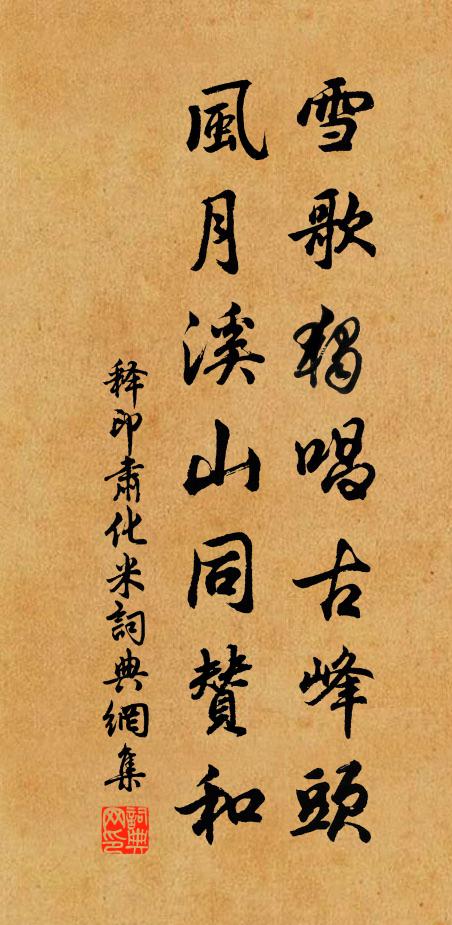 雪歌獨唱古峰頭
風月溪山同贊和
释印肅化米詞典網集
詞典網印